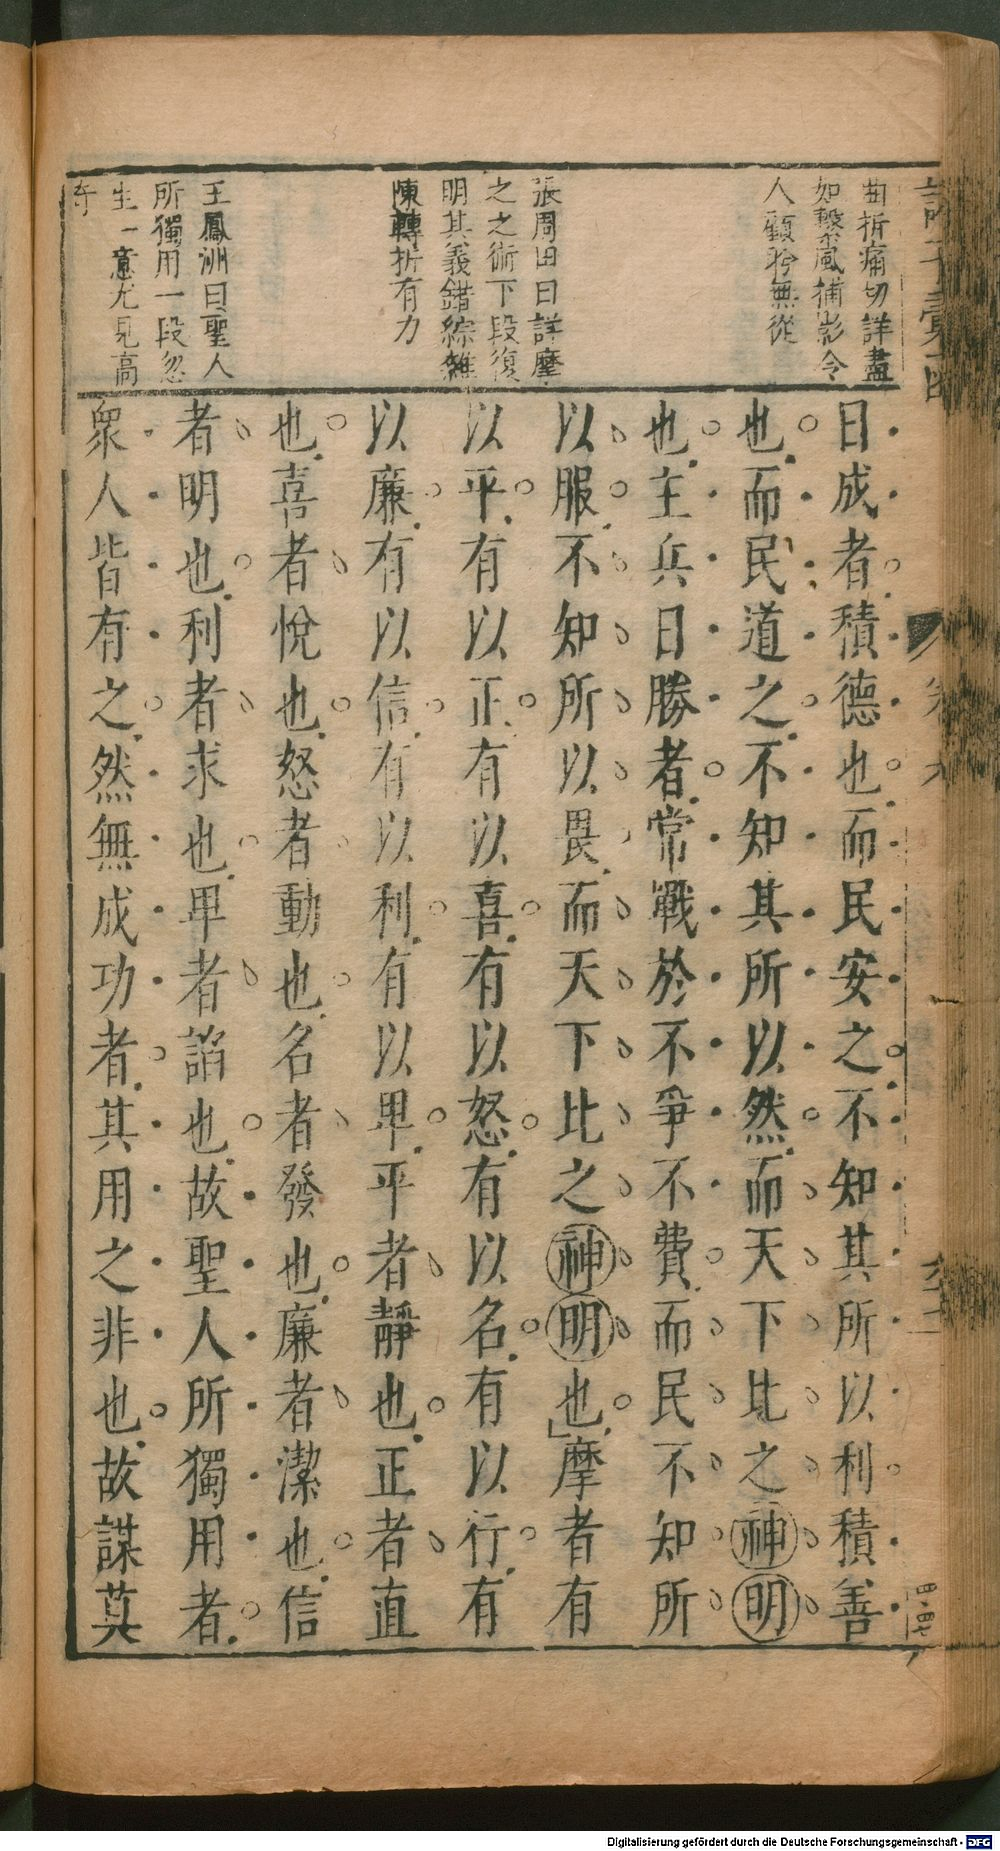 曲折痛切詳盡
如繫風捕影令
人顧盻無從
張周田曰詳摩
之之術下段復
明其義錯綜雜
陳轉折有力
王鳳洲曰聖人
所獨用一段忽
生一意尤見高
奇
日成者積德也而民安之不知其所以利積善
也而民道之不知其所以然而天下比之神明
也主兵日勝者常戰於不爭不費而民不知所
以服不知所以畏而天下比之神明也摩者有
以平有以正有以喜有以怒有以名有以行有
以廉有以信有以利有以卑平者靜也正者直
也喜者悅也怒者動也名者發也廉者潔也信
者明也利者求也卑者諂也故聖人所獨用者
衆人皆有之然無成功者其用之非也故謀莫
Digitalisierung gefördert durch die Deutsche Forschungsgemeinschaft - DFG